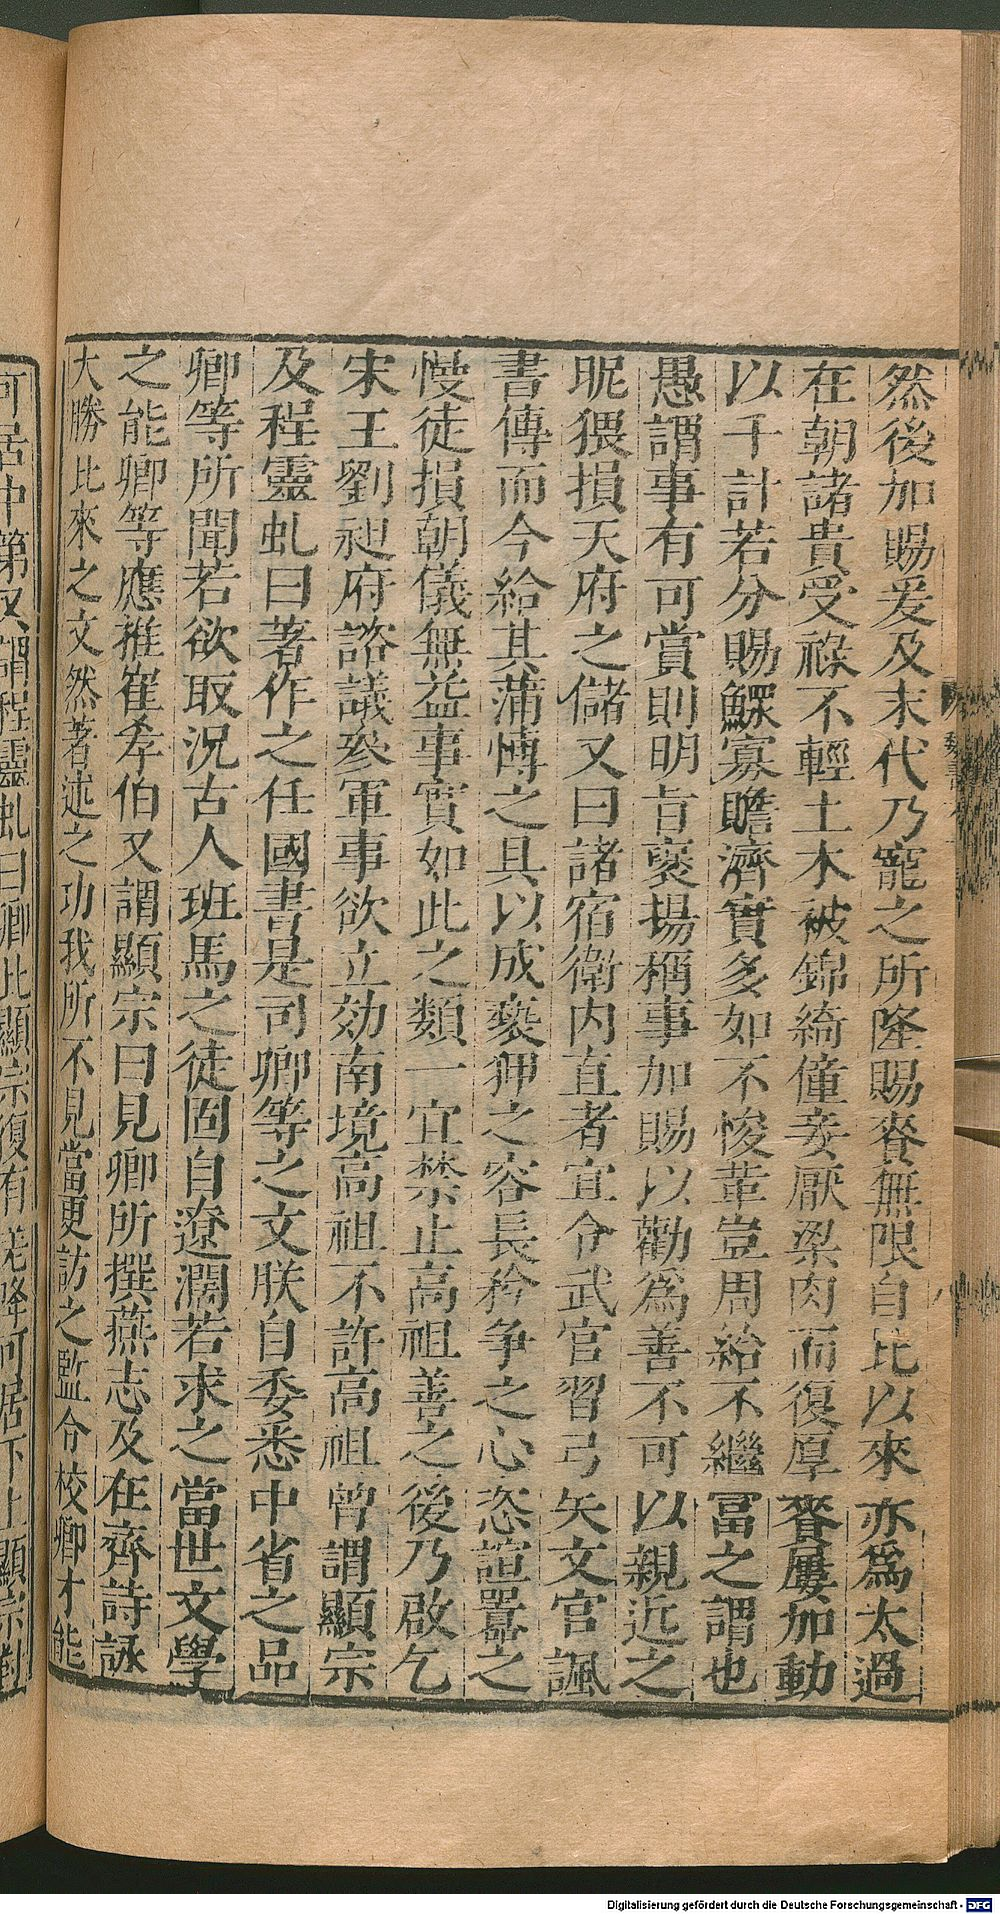 然後加賜爰及末代乃寵之所隆賜賚無限自比以來亦爲太過
在朝諸貴受祿不輕土木被錦綺僮妾厭粱肉而復厚賚屢加動
以千計若分賜鰥寡贍濟實多如不悛革豈周給不繼富之謂也
愚謂事有可賞則明旨襃揚稱事加賜以勸爲善不可以親近之
昵猥損天府之儲又曰諸宿衛內直者宜令武官習弓矢文官諷
書傳而今給其蒲博之具以成褻狎之容長矜争之心恣諠嚻之
慢徒損朝儀無益事實如此之類一宜禁止高祖善之後乃啟乞
宋王劉昶府諮議參軍事欲立効南境高祖不許高祖曾謂顯宗
及程靈虬曰著作之任國書是司卿等之文朕自委悉中省之品
卿等所聞若欲取况古人班馬之徒固自遼濶若求之當世文學
之能卿等應推崔孝伯又謂顯宗曰見卿所撰燕志及在齊詩詠
大勝比來之文然著述之功我所不見當更訪之監令校卿才能
可居中第又謂程靈虬曰卿比顯宗復有差降可居下上顯宗對
Digitalisierung gefördert durch die Deutsche Forschungsgemeinschaft - DFG